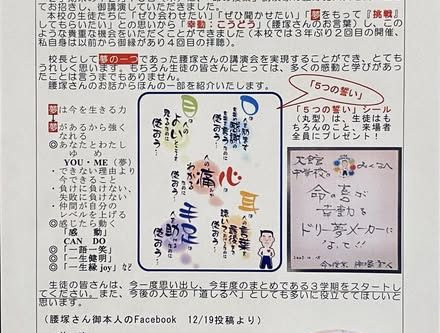 てお招きし、御講演していただきました。
本校の生徒たちに「ぜひ会わせたい」「ぜひ聞かせたい」「夢をもって『挑戦』
してもらいたい」との思いから「幸動：こうどう」（腰塚さんのお言葉）、このよ
うな貴重な機会をいただくことができました（本校では３年ぶり２回目の開催、
私自身は以前から御縁があり４回目の拝聴）。
校長として夢の一つであった腰塚さんの講演会を実現することができ、とても
うれしく思います。もちろん生徒の皆さんにとっては、多くの感動と学びがあっ
たことは言うまでもありません。
腰塚さんのお話からほんの一部を紹介いたします。
夢は今を生きる力
夢
夢があるから強く
なれる
◎あなたとわたし
ゆ　め
YOU・ME（夢）
・できない理由より
今できること
・負けに負けない、
失敗に負けない
・仲間が自分の
レベルを上げる
◎感じたら動く
「感　動」
CAN　DO
◎「一語一笑」
◎「一生健明」
◎「一生縁 joy」など
口は
人を励ます
言葉や
感謝の言葉を
言うために
使おう…
目は
人のよいところを
見るために
使おう…
心は
人の痛みが
わかるために
使おう…
耳は
人の言葉を
最後まで
聴いてあげるために
使おう…
手足は
人を助けるために
使おう…
「５つの誓い」
「５つの誓い」シール
（丸型）は、生徒はも
ちろんのこと、来場者
全員にプレゼント！
中学校の
みなさんへ
命の喜ぶ
幸動を
ドリー夢メーカーに
なって!!
生徒の皆さんは、今一度思い出し、今年度のまとめである３学期をスタートし
てください。また、今後の人生の「道しるべ」としても多いに役立ててほしいと
思います。
（腰塚さん御本人のFacebook　12/19投稿より）